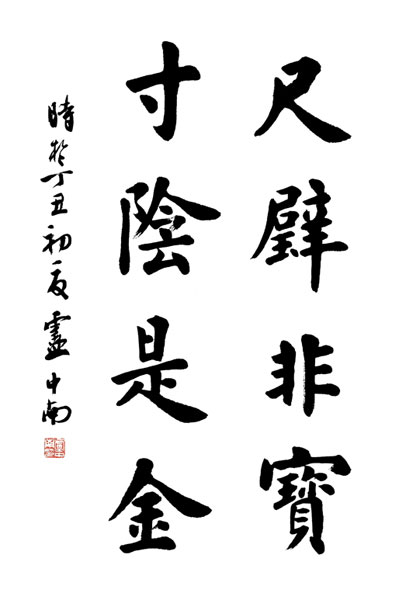 尺璧非寶
寸陰是金
時於丁丑初夏盧中南